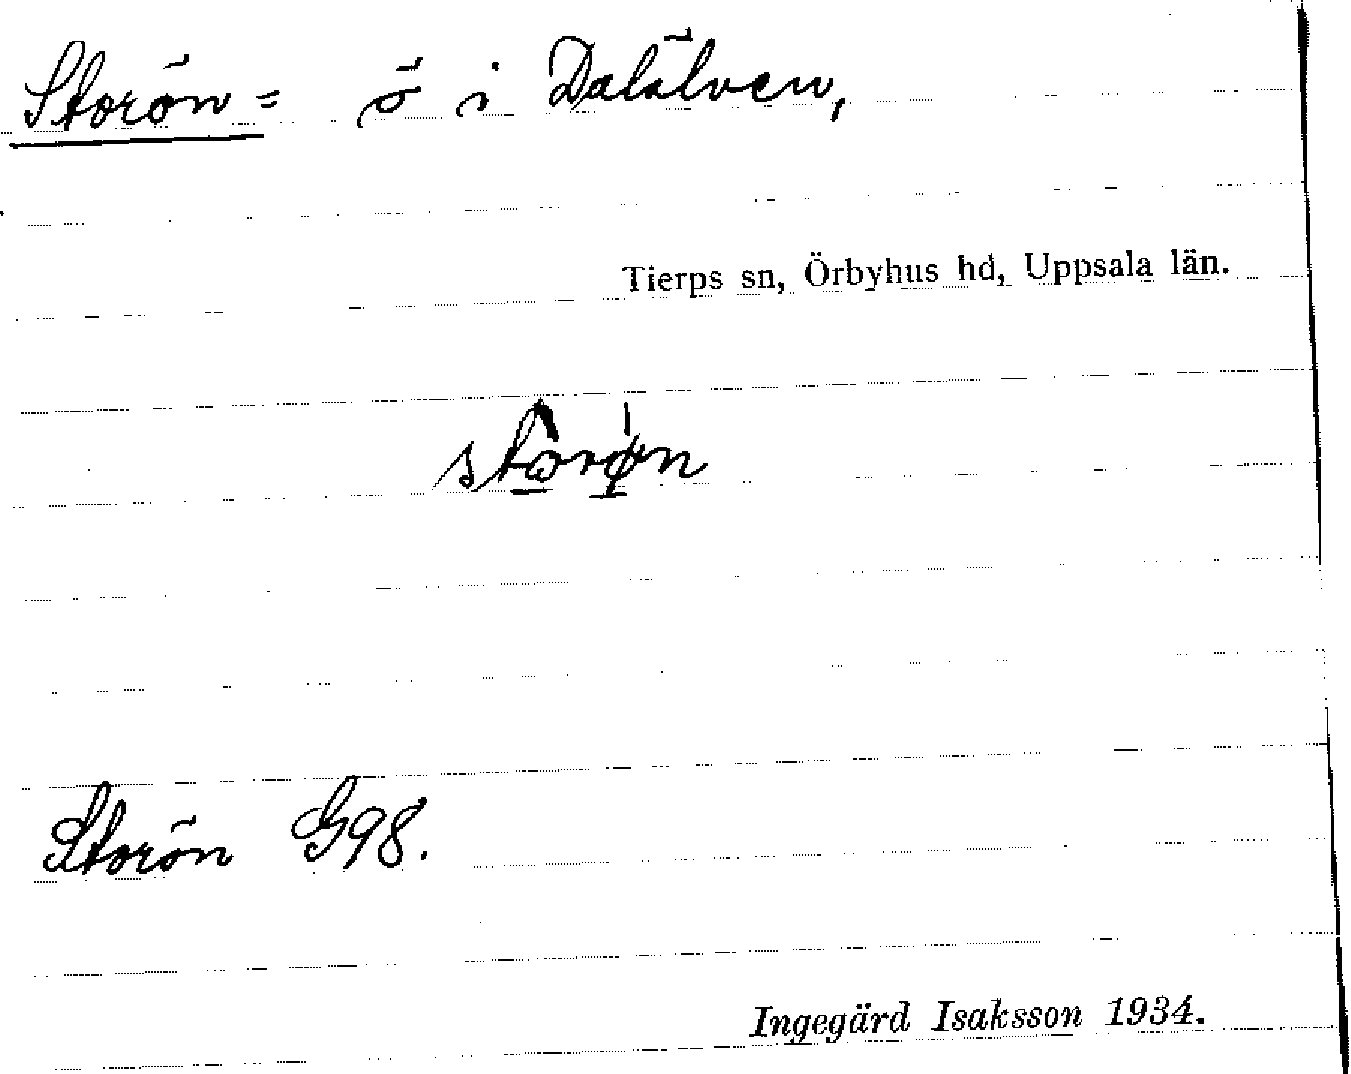 Storön = ö i Dalälven,
Tierps sn, Örbyhus hd, Uppsala län.
storøn
Storön G98.
Ingegärd Isaksson 1934.